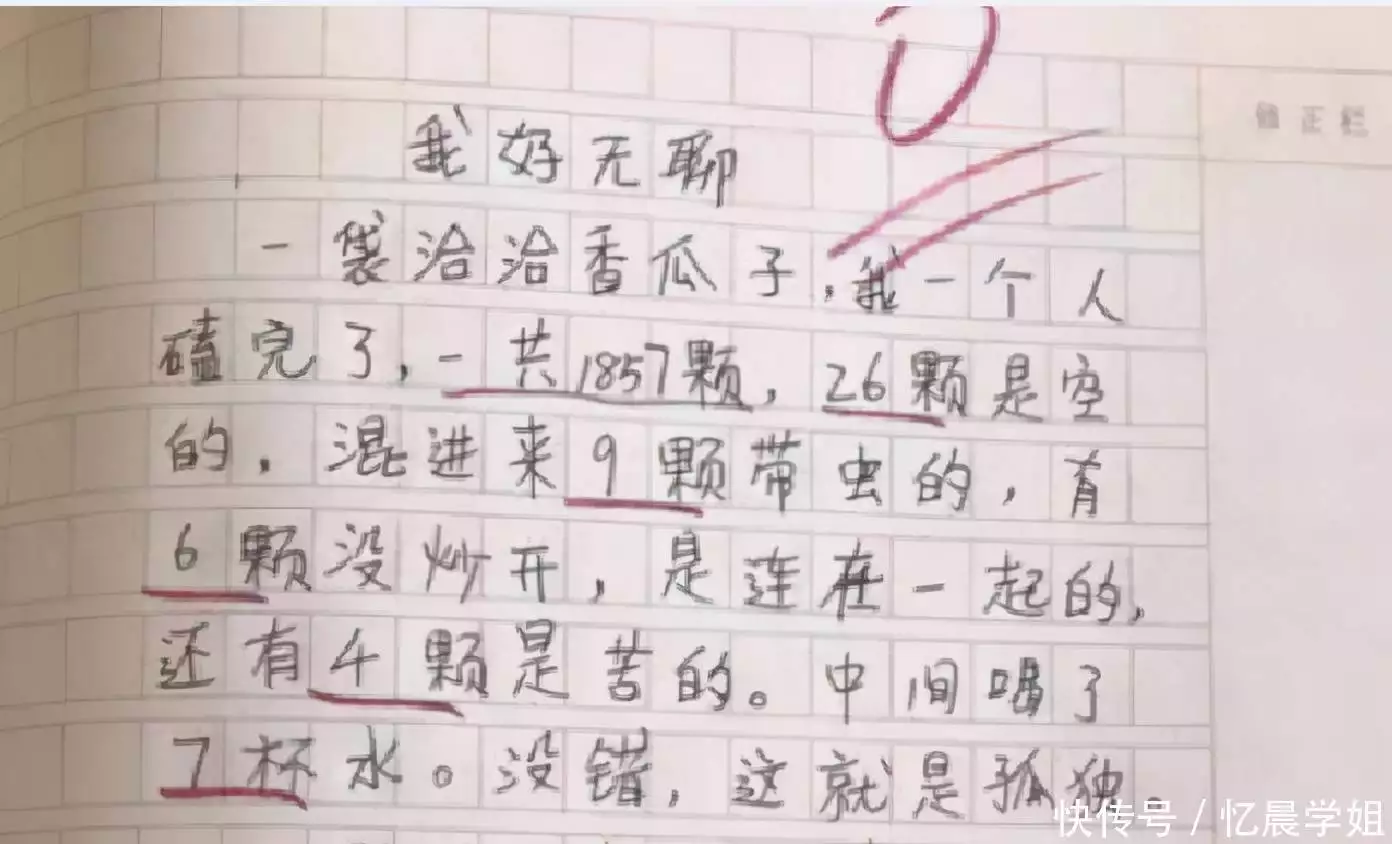 修正栏
我好无聊
一袋洽洽香瓜子,我一个人
磕完了,一共1857颗,26颗是空
的,混进来9颗带虫的,有
6颗没炒开,是连在一起的,
还有4颗是苦的。中间喝了
7杯水。没错,这就是孤独。
快传号/忆晨学姐